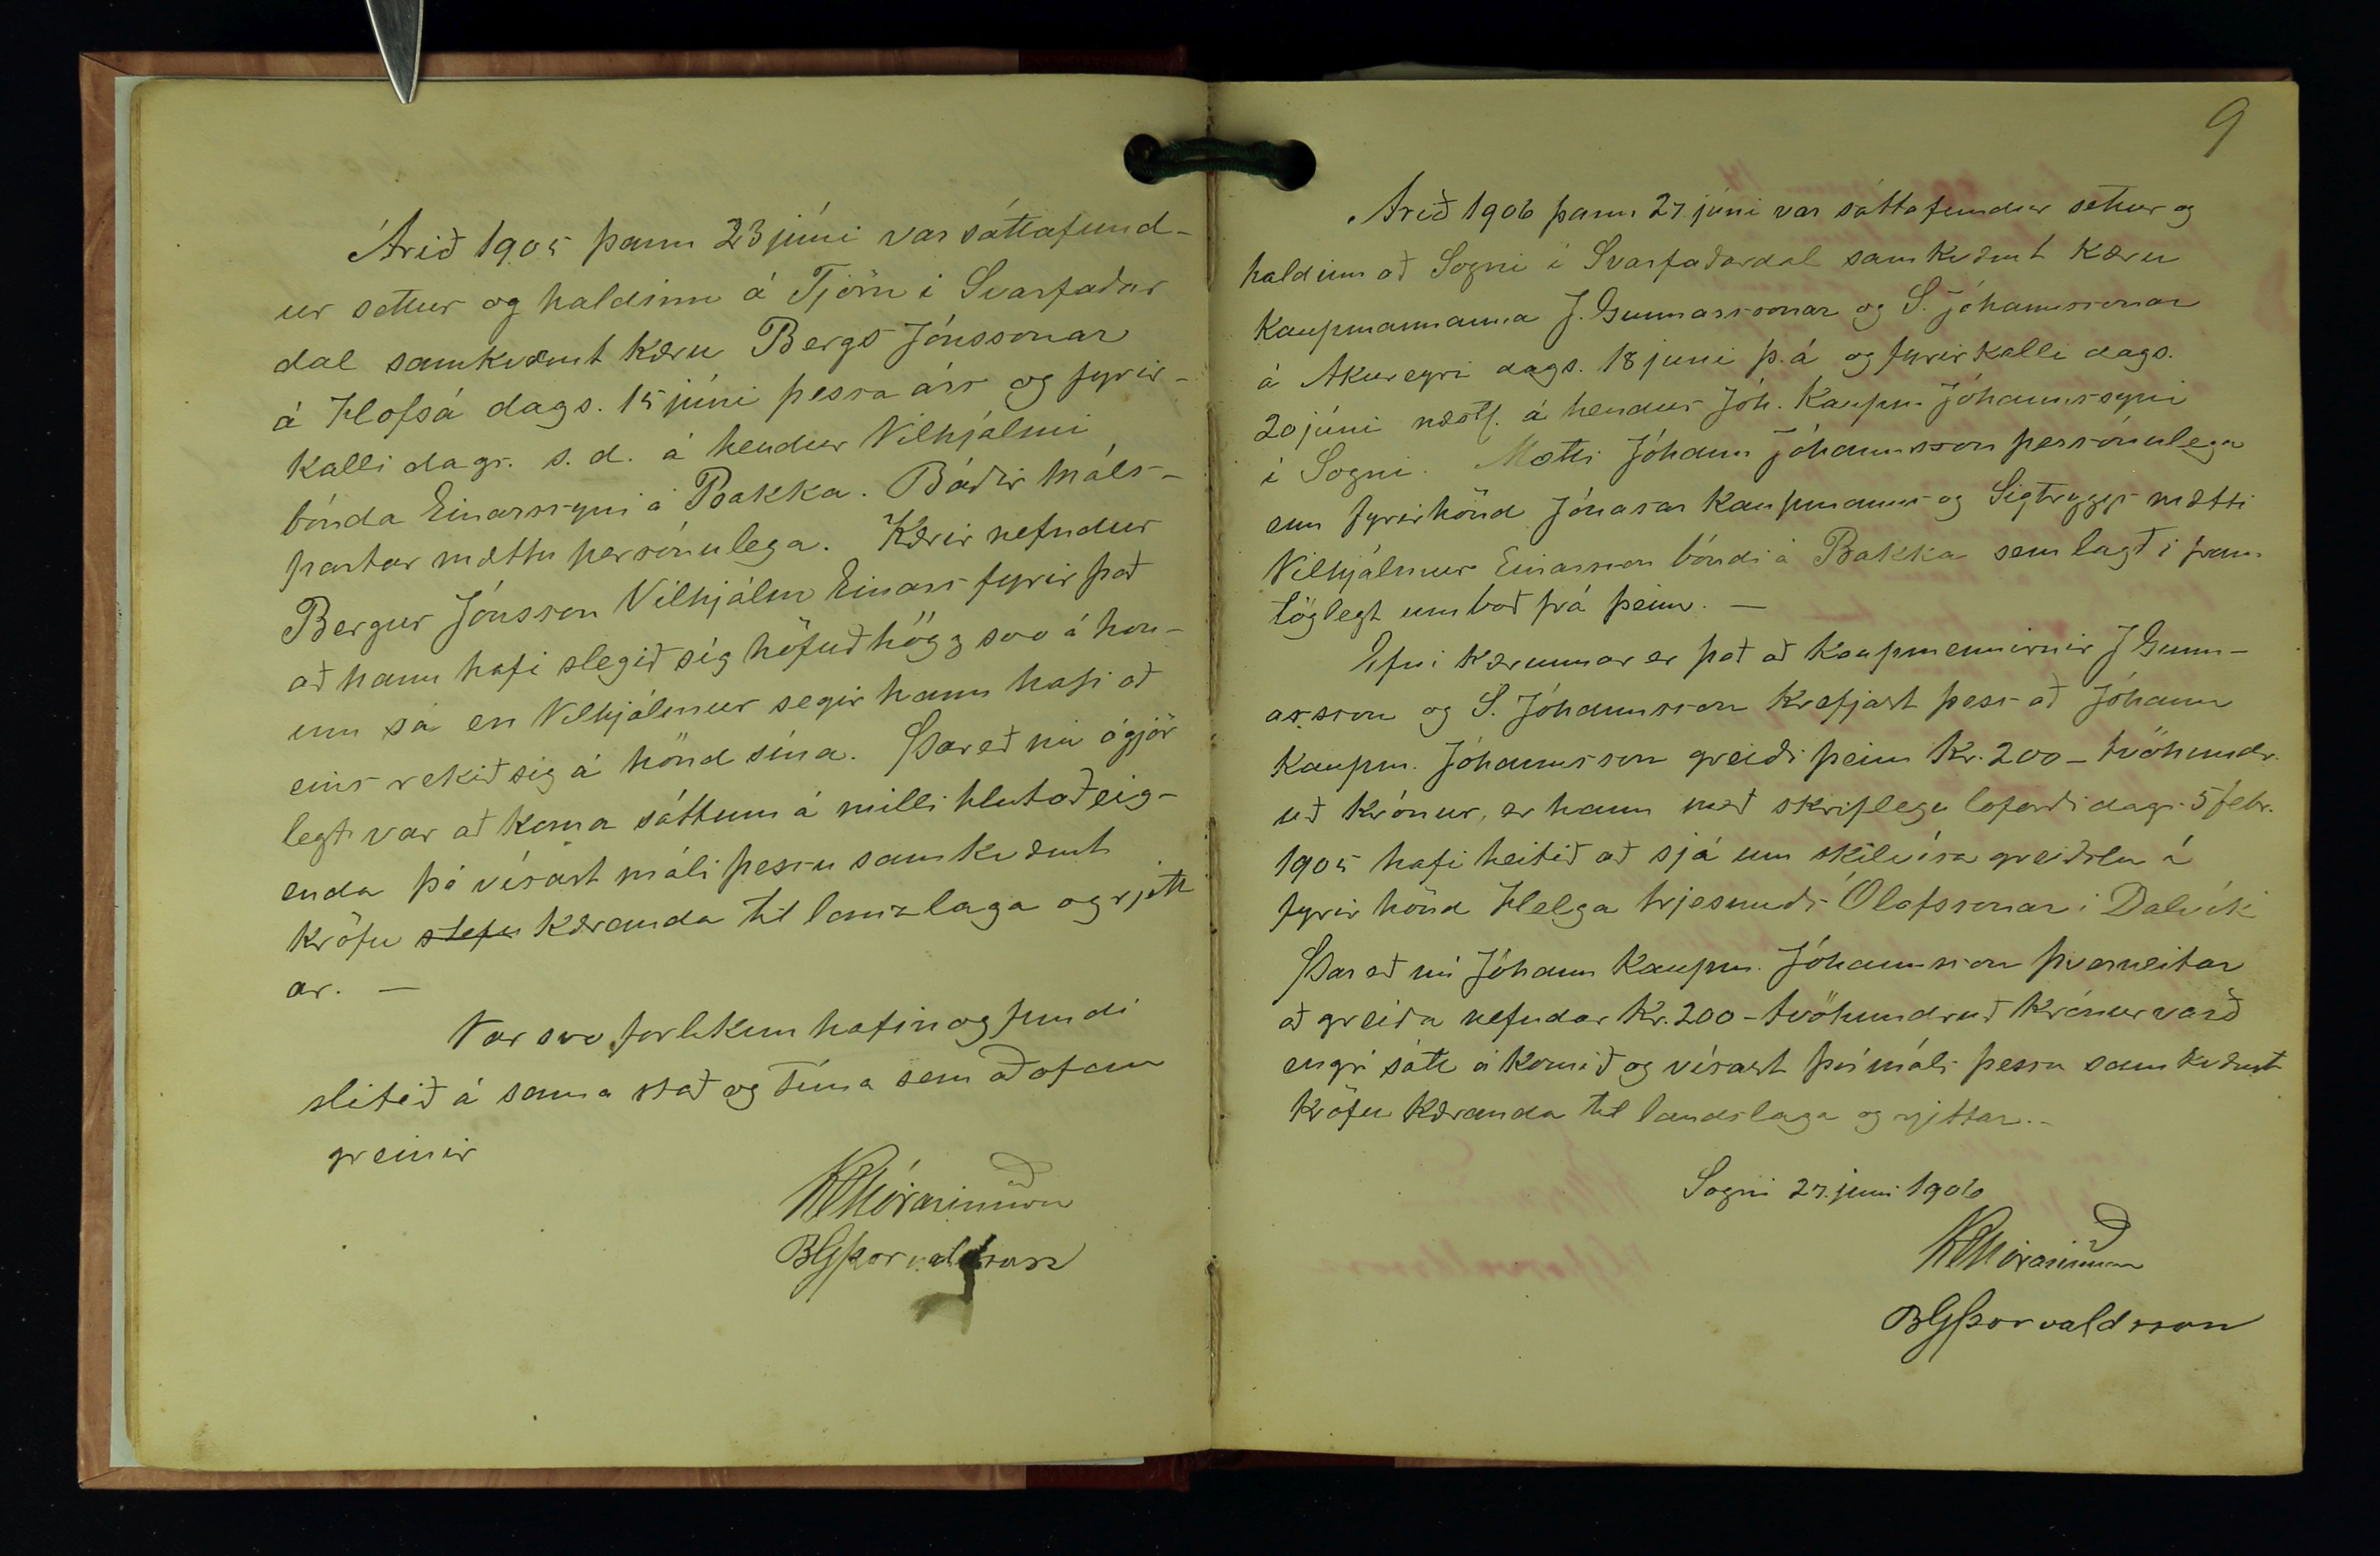 Árið 1905 þann 23 júní var sáttafund-
ur settur og haldinn á Tjörn i Svarfaðar
dal samkvæmt kæru Bergs Jónssonar
á Hofsá dags. 15 júní þessa árs og fyrir-
kalli dags. s. d. á hendur Vilhjálmi
bónda Einarssyni á Bakka. Báðir máls-
partar mættu persónulega. Kærir nefndur
Bergur Jónsson Vilhjálm Einars fyrir það
að hann hafi slegið sig höfuðhögg svo á hon-
um sá en Vilhjálmur segir hann hafi að
eins rekið sig á hönd sína. Þareð nú ógjör
legt var að koma sáttum á milli hlutaðeig-
enda þá vísast máli þessu samkvæmt
kröfu stefn kæranda til landslaga og rjett
ar. —
Var svo forlíkun hafin og fundi
slitið á sama stað og tíma sem að ofan
greinir
KrEÞórarinsson
BGÞorvaldsson
9
Árið 1906 þann 27. júní var sáttafundur settur og
haldinn að Sogni i Svarfaðardal samkvæmt kæru
Kaupmannanna J. Gunnarssonar og S. Jóhannssonar
á Akureyri dags. 18 juni þ. á og fyrirkalli dags.
20 júni næstl. á hendur Jóh. kaupm. Jóhannssyni
í Sogni. Mætti Jóhann Jóhannsson persónulega
enn fyrirhönd Jónasar kaupmanns og Sigtryggs mætti
Vilhjálmur Einarsson bóndi á Bakka sem lagði fram
löglegt umboð frá þeim. —
Efni kærunnar er það að kaupmennirnir J Gunn-
arsson og S. Jóhannsson krefjast þess að Jóhann
kaupm. Jóhannsson greiði þeim Kr. 200 - tvöhundr.
uð krónur, er hann með skriflegu loforði dags. 5 febr.
1905 hafi heitið að sjá um skilvísa greiðslu á
fyrir hönd Helga trjesmiðs Ólafssonar í Dalvík
Þareð nú Jóhann Kaupm. Jóhannsson þverneitar
að greiða nefndar Kr. 200 - tvöhundruð krónur varð
engri sátt á komið og vísast því máli þessu samkvæmt
kröfu kæranda til landslaga og rjettar. -
Sogni 27. juni 1906
KrEÞórarinsson
BGÞorvaldsson